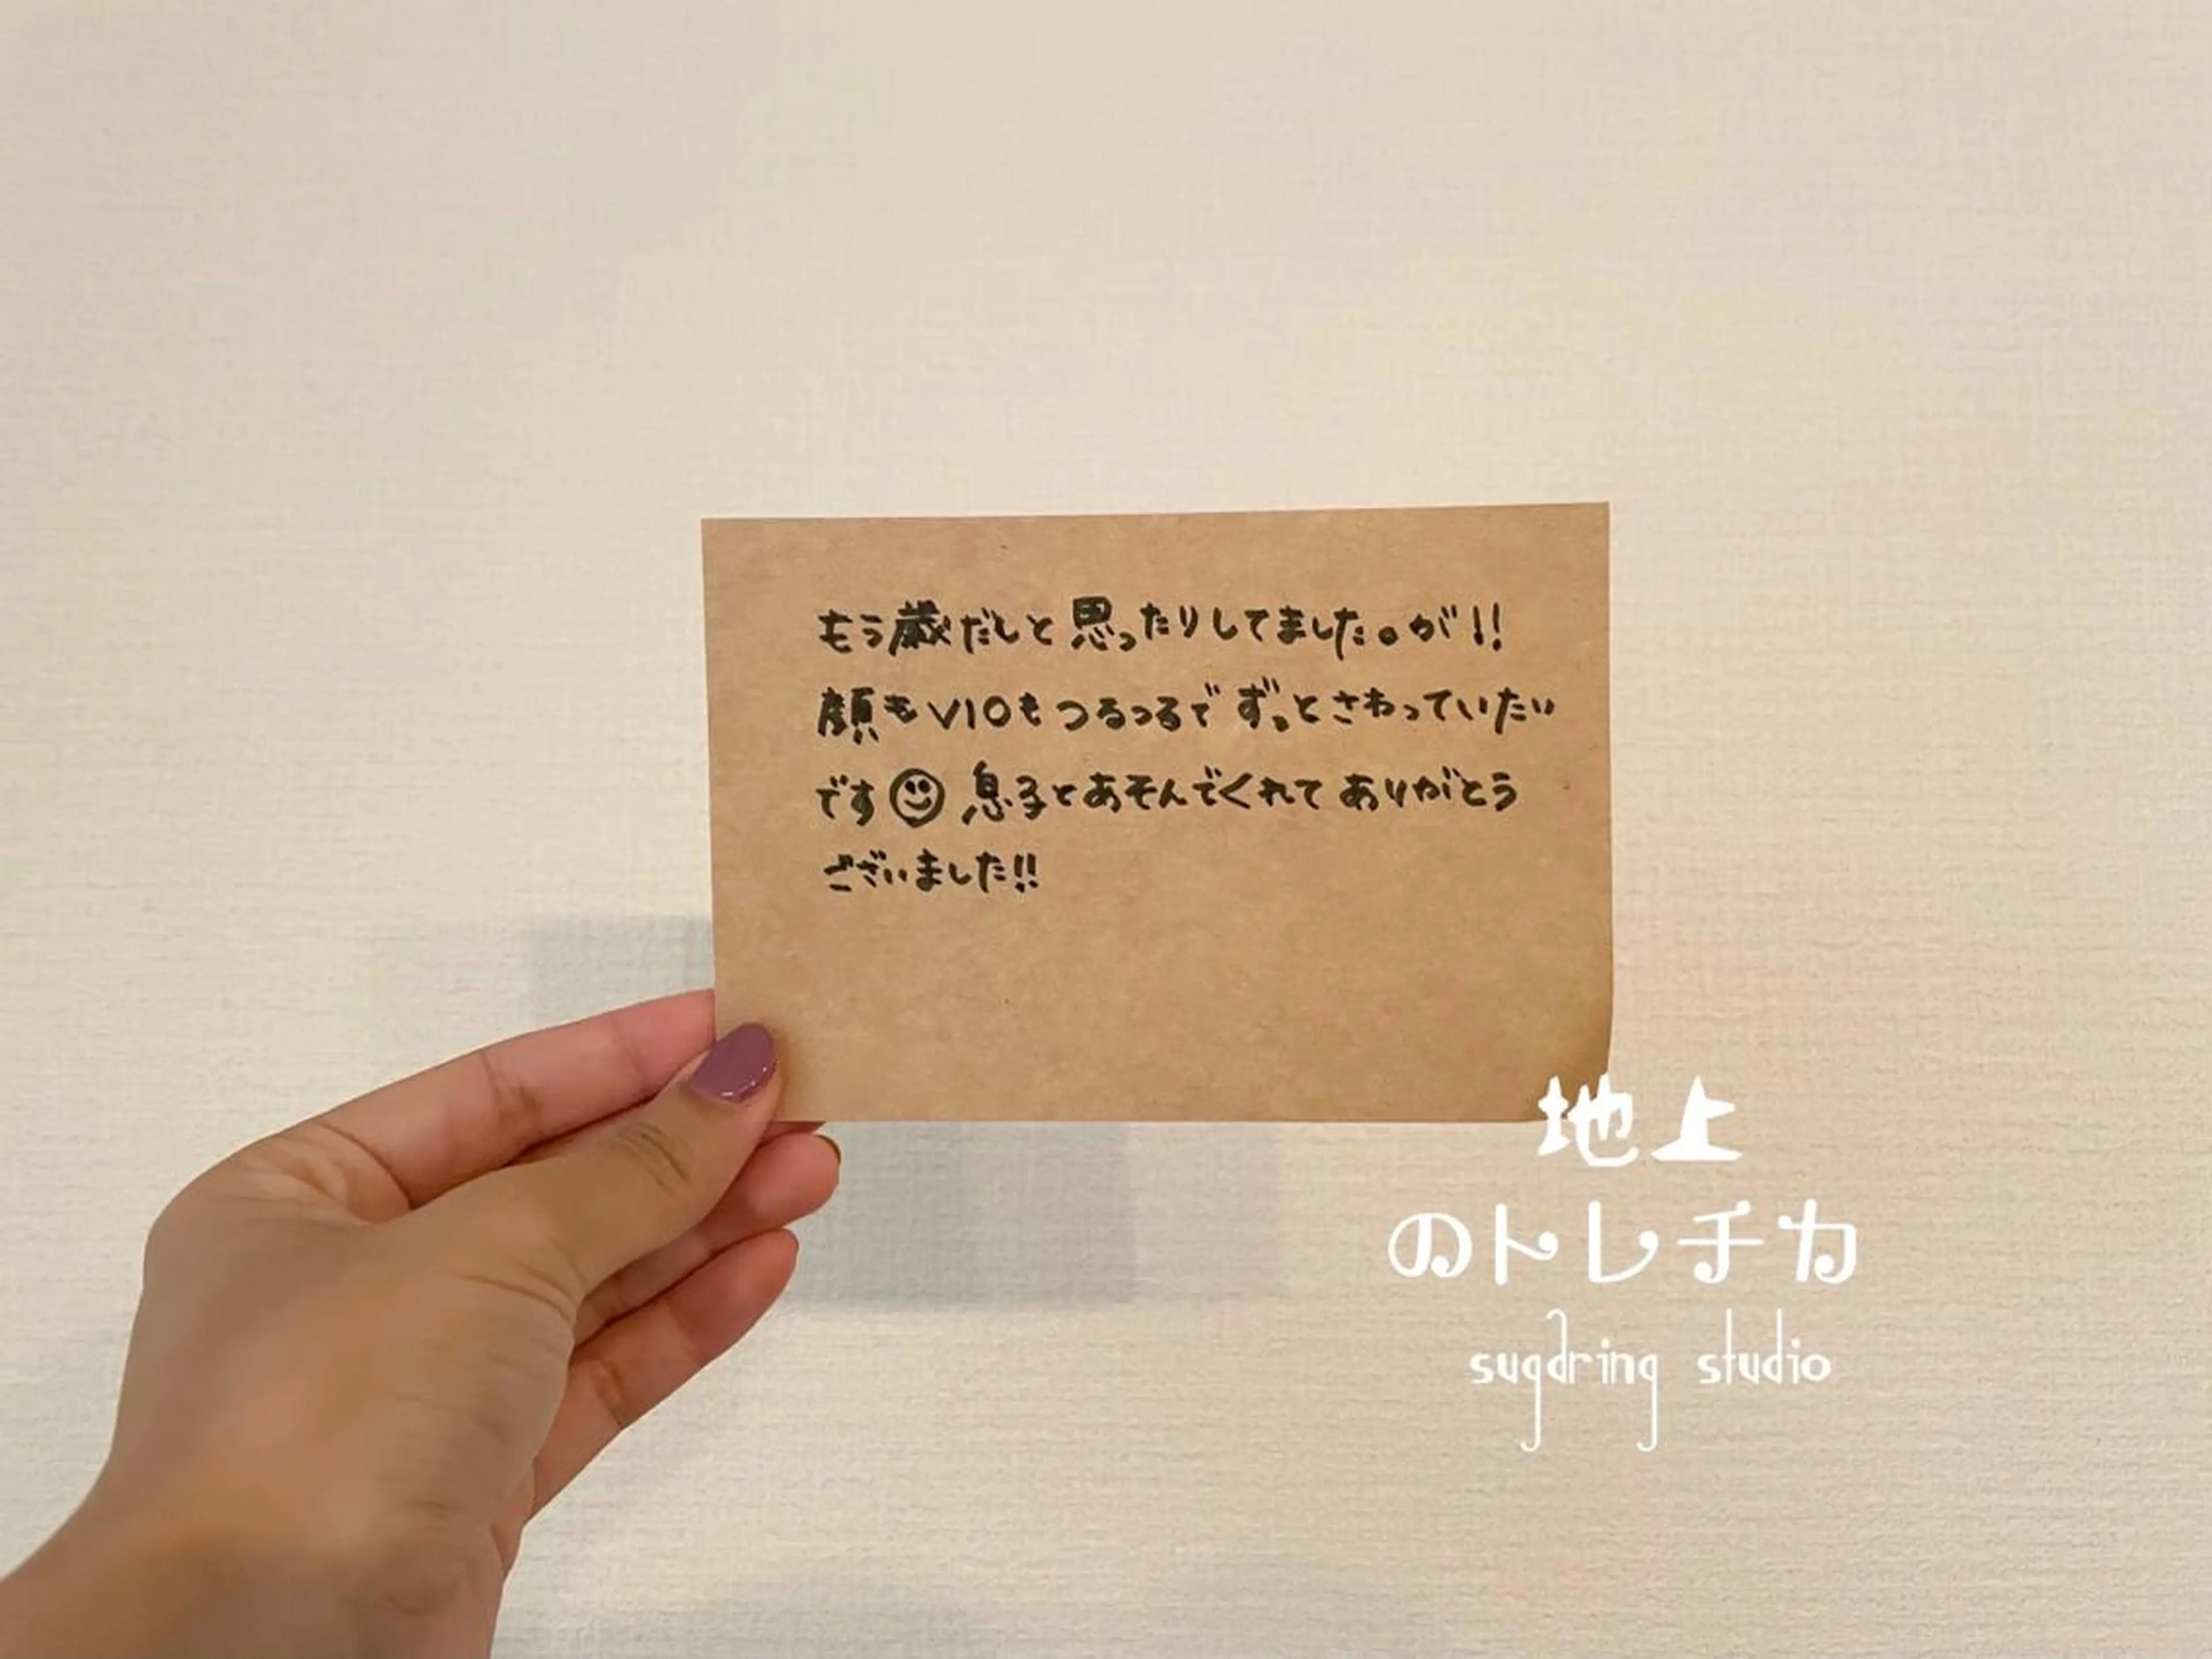 もう歳だしと思ったりしてました。が!!
顔もVIOもつるつるでずっとさわっていたい
です☺息子とあそんでくれてありがとう
ございました!!
地上
のトレチカ
sugaring studio